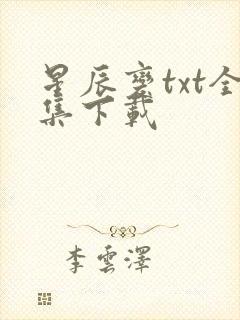 星辰变txt全
集下载
李雲澤